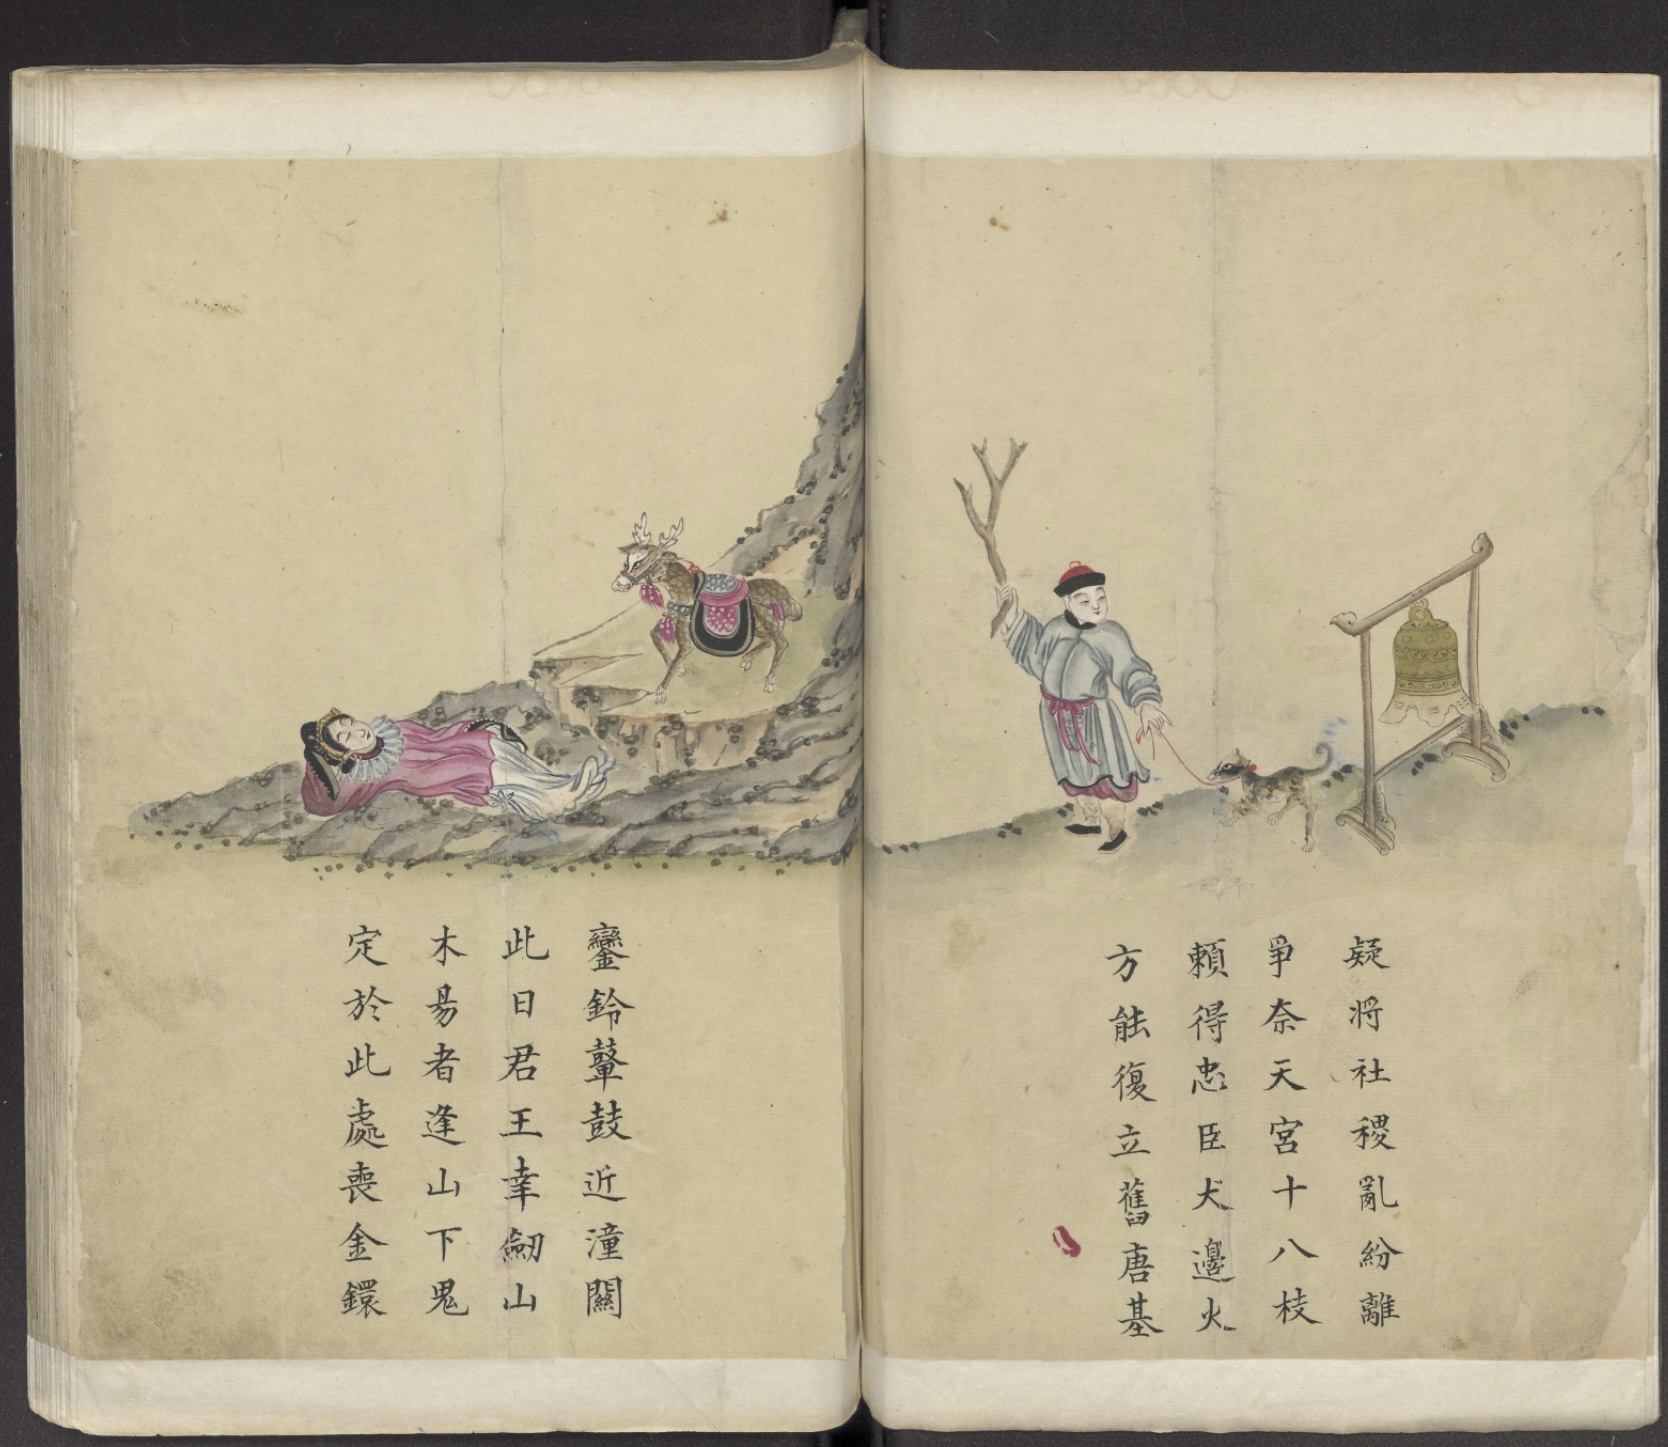 疑將社稷亂紛離
爭奈天宮十八枝
賴得忠臣犬邊火
方能復立舊唐基
鑾鈴鼙鼓近潼關
此日君王幸劒山
木易者逢山下鬼
定於此處喪金鐶